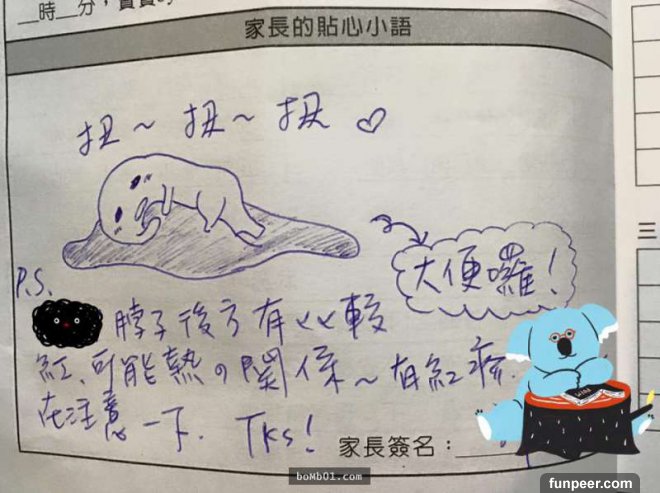 時__分，寶寶的
家長的貼心小語
扭～扭～扭♡
大便囉！
P.S.
脖子後方有比較
紅、可能熱の關係～有紅疹.
在注意一下. Tks!
家長簽名：
三
boMb01.com
funpeer.com